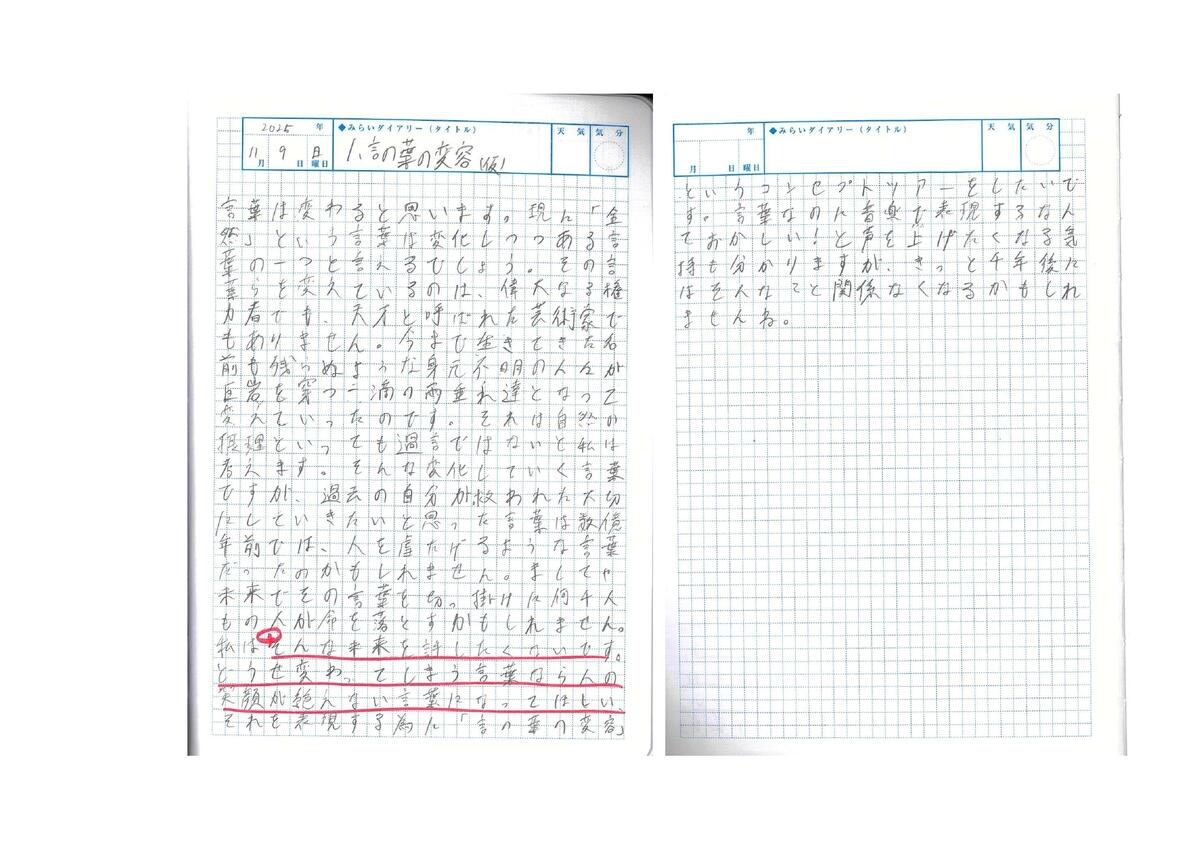 2025 年
11 月 9 日 日 曜日
◆みらいダイアリー(タイトル)
1.言の葉の変容(仮)
天 気
気 分
言葉は変わると思います。現に「全
然」という言葉は変化しつつある言
葉の一つと言えるでしょう。その言
葉らを変えているのは、偉大なる権
力者でも、天才と呼ばれた芸術家で
もありません。今まで生きてきた名
前も残らぬような身元不明の人々が
巨岩を穿つ一滴の雨垂れ達となって
変えていったのです。それは自然の
摂理といっても過言ではないと私は
考えます。そんな変化していく言葉
ですが、過去の自分が救われた大切
にしていきたいと思った言葉は数億
年前では、人を虐たげるような言葉
だったのかもしれません。ましてや
未来でその言葉を切っ掛けに何千人
もの人が命を落とすかもしれません。
私はそんな未来を許したくないです。
どうせ変わってしまう言葉なら人の
笑顔が絶えない言葉になってほしい、
それを表現する為に「言の葉の変容」
年
月 日 曜日
◆みらいダイアリー(タイトル)
天 気
気 分
というコンセプトツアーをしたいで
す。言葉なのに音楽で表現するなん
ておかしい!と声を上げたくなる気
持も分かりますが、きっと千年後に
はそんなこと関係なくなるかもしれ
ませんね。